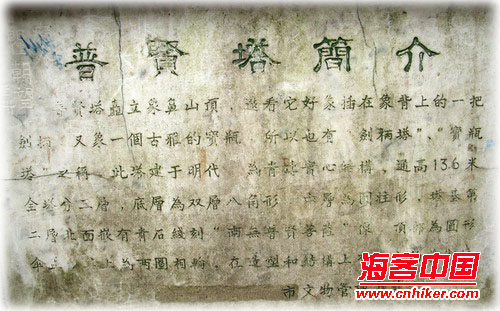 普賢塔簡介
普賢塔矗立象鼻山頂，遠看它好象插在象背上的一把
劍柄，又象一個古雅的寶瓶，所以也有“劍柄塔”、“寶瓶
塔”之稱。此塔建于明代，為青磚實心結構，通高13.6米
全塔分二層，底層為双層八角形，層為圆柱形，塔基第
二層北面嵌有青石綫刻“南無普賢菩薩”像，頂部為圆形
上為两圆相輪，在造型和結構上
市文物管
海客中国
www.cnhiker.com